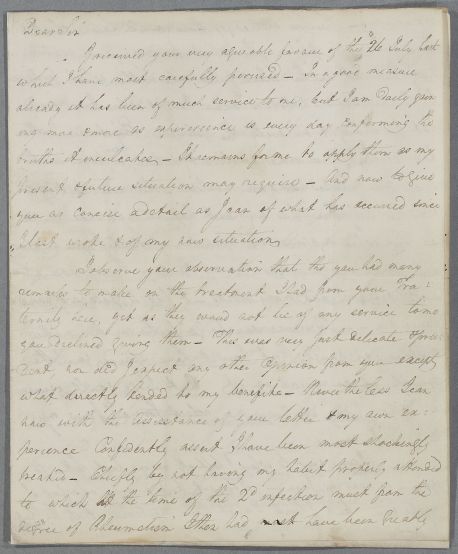 Dear Sir
I received your very agreable favour of the 26 July last
which I have most carefully perused – In a great measure
already it has been of much service to me, but I am Daily gain
ing more & more as experience is every day confirming the
truths it inculcates – It remains for me to apply them as my
present & future situation may require – And now to give
you as concise a detail as I can of what has occured since
I last wrote & of my now situation
I observe your observation that tho you had many
remarks to make on the treatment I had from your Fra:
ternity here, yet as they would not be of any service to me
you declined giving them – This was very just delicate & pru
dent nor did I expect any other opinion from you except
what directly tended to my benefite – Nevertheless I can
now with the assistance of your letter & my own ex:
perience Confidently assert I have been most shockingly
treated – Chiefly by not having my habit properly attended
to which at the time of the 2d infection must from the
degree of Rheumatism I then had have been greatly